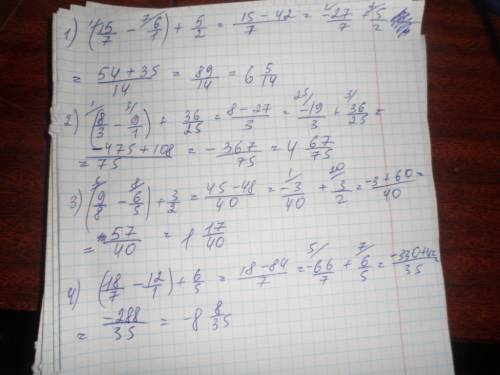 1) (15/7 - 6/1) + 5/2 = 15 - 42 / 7 = -27/7 5/2
= 54 + 35 / 14 = 89/14 = 6 5/14
2) (8/3 - 9/1) + 36/25 = 8 - 27 / 3 = -19/3 + 36/25 =
= -475 + 108 / 75 = - 367/75 = 4 67/75
3) (9/8 - 6/5) + 3/2 = 45 - 48 / 40 = -3/40 + 3/2 = -3 + 60 / 40 =
= 57/40 = 1 17/40
4) (18/7 - 12/1) + 6/5 = 18 - 84 / 7 = -66/7 + 6/5 = -330 + 42 / 35
= -288/35 = -8 8/35